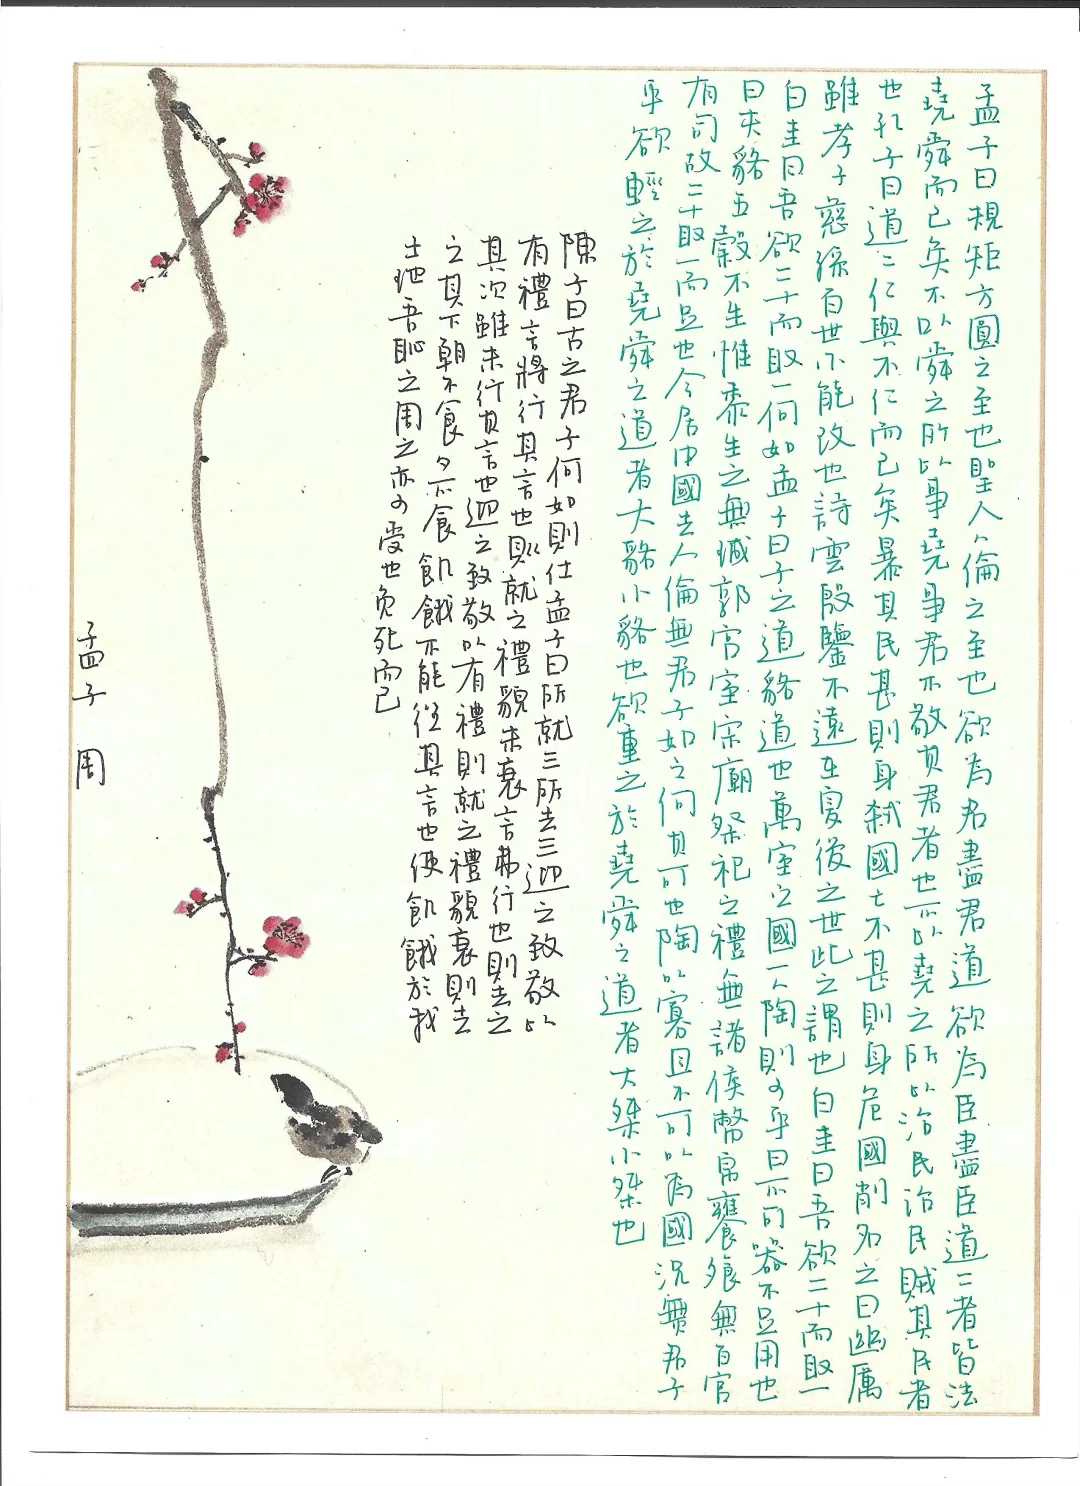 孟子曰規矩方圓之至也聖人人倫之至也欲為君盡君道欲為臣盡臣道二者皆法
堯舜而已矣不以舜之所以事堯事君不敬其君者也不以堯之所以治民治民賊其民者
也孔子曰道二仁與不仁而已矣暴其民甚則身弒國亡不甚則身危國削名之曰幽厲
雖孝子慈孫百世不能改也詩雲殷鑒不遠在夏後之世此之謂也白圭曰吾欲二十而取一
白圭曰吾欲二十而取一何如孟子曰子之道貉道也萬室之國一人陶則可乎曰不可器不足用也
曰夫貉五穀不生惟黍生之無城郭宮室宗廟祭祀之禮無諸侯幣帛饔飧無百官
有司故二十取一而足也今居中國去人倫無君子如之何其可也陶以寡且不可以為國況無君子
乎欲輕之於堯舜之道者大貉小貉也欲重之於堯舜之道者大桀小桀也
陳子曰古之君子何如則仕孟子曰所就三所去三迎之致敬以
有禮言將行其言也則就之禮貌未衰言弗行也則去之
其次雖未行其言也迎之致敬以有禮則就之禮貌衰則去
之其下朝不食夕不食飢餓不能從其言也使飢餓於我
土地吾恥之周之亦可受也免死而已
孟子 周